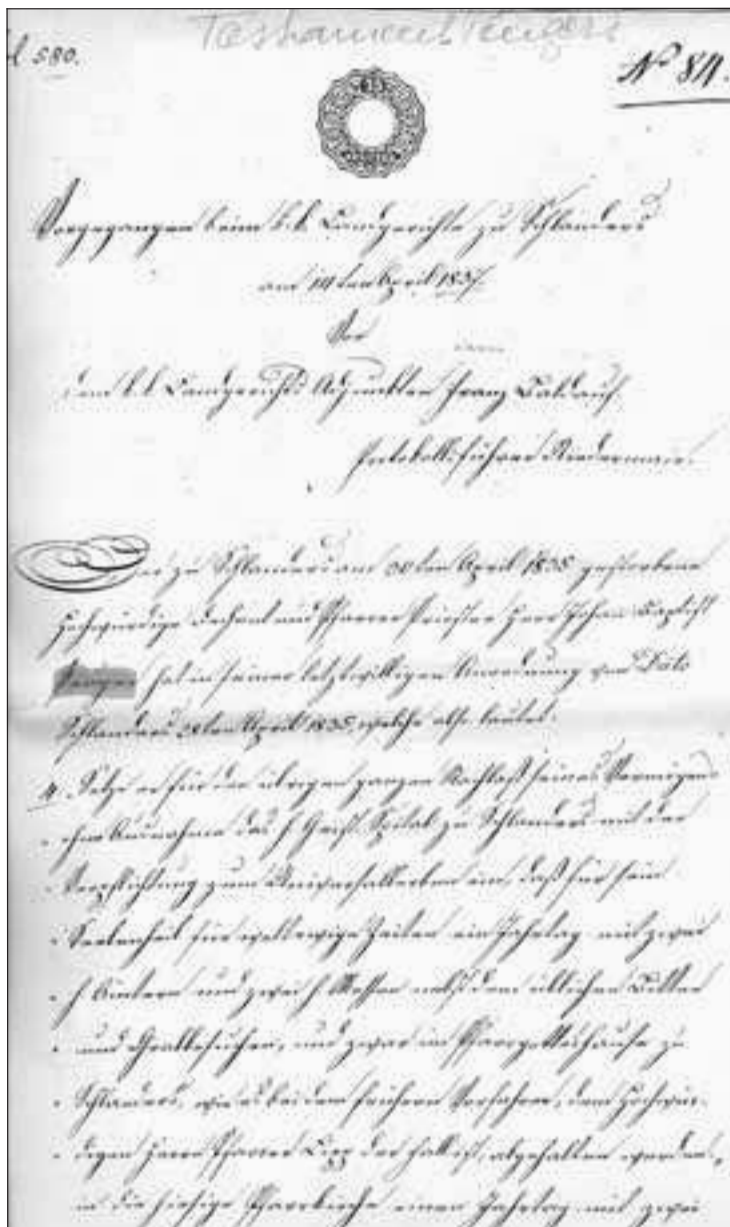 Testament Penger
fol 580.
N° 84.
Vorgegangen beim k.k. Landgerichte zu Schlanders
am 14ten April 1837.
Vor
dem k.k. Landgerichts Adjunkten Franz Baldauf.
Protokollsführer Niedermair.
Der zu Schlanders am 30ten April 1835 gestorbene
hochwürdige Dechant und Pfarrer Priester Herr Johan Baptist
hat in seiner letztwilligen Anordnung von Dato
Schlanders 28ten April 1835, welche also lautet:
4. Setze er für den übrigen ganzen Nachlaß seines Vermögens
ohne Ausnahme das h Geist Spital zu Schlanders mit der
Verpflichtung zum Universallerben ein, daß für sein
Seelenheil für weltewige Zeiten ein Jahrtag mit zwei
h Ämtern und zwei h Messen nebst dem üblichen Bitten
und Grabbesuchen, und zwar im Pfarrgotteshause zu
Schlanders, wie es bei dem frühern Vorfahrer, dem hochwür-
digen Herrn Pfarrer der Fall ist, abgehalten werden,
in die hiesige Pfarrkirche einen Jahrtag mit zwei